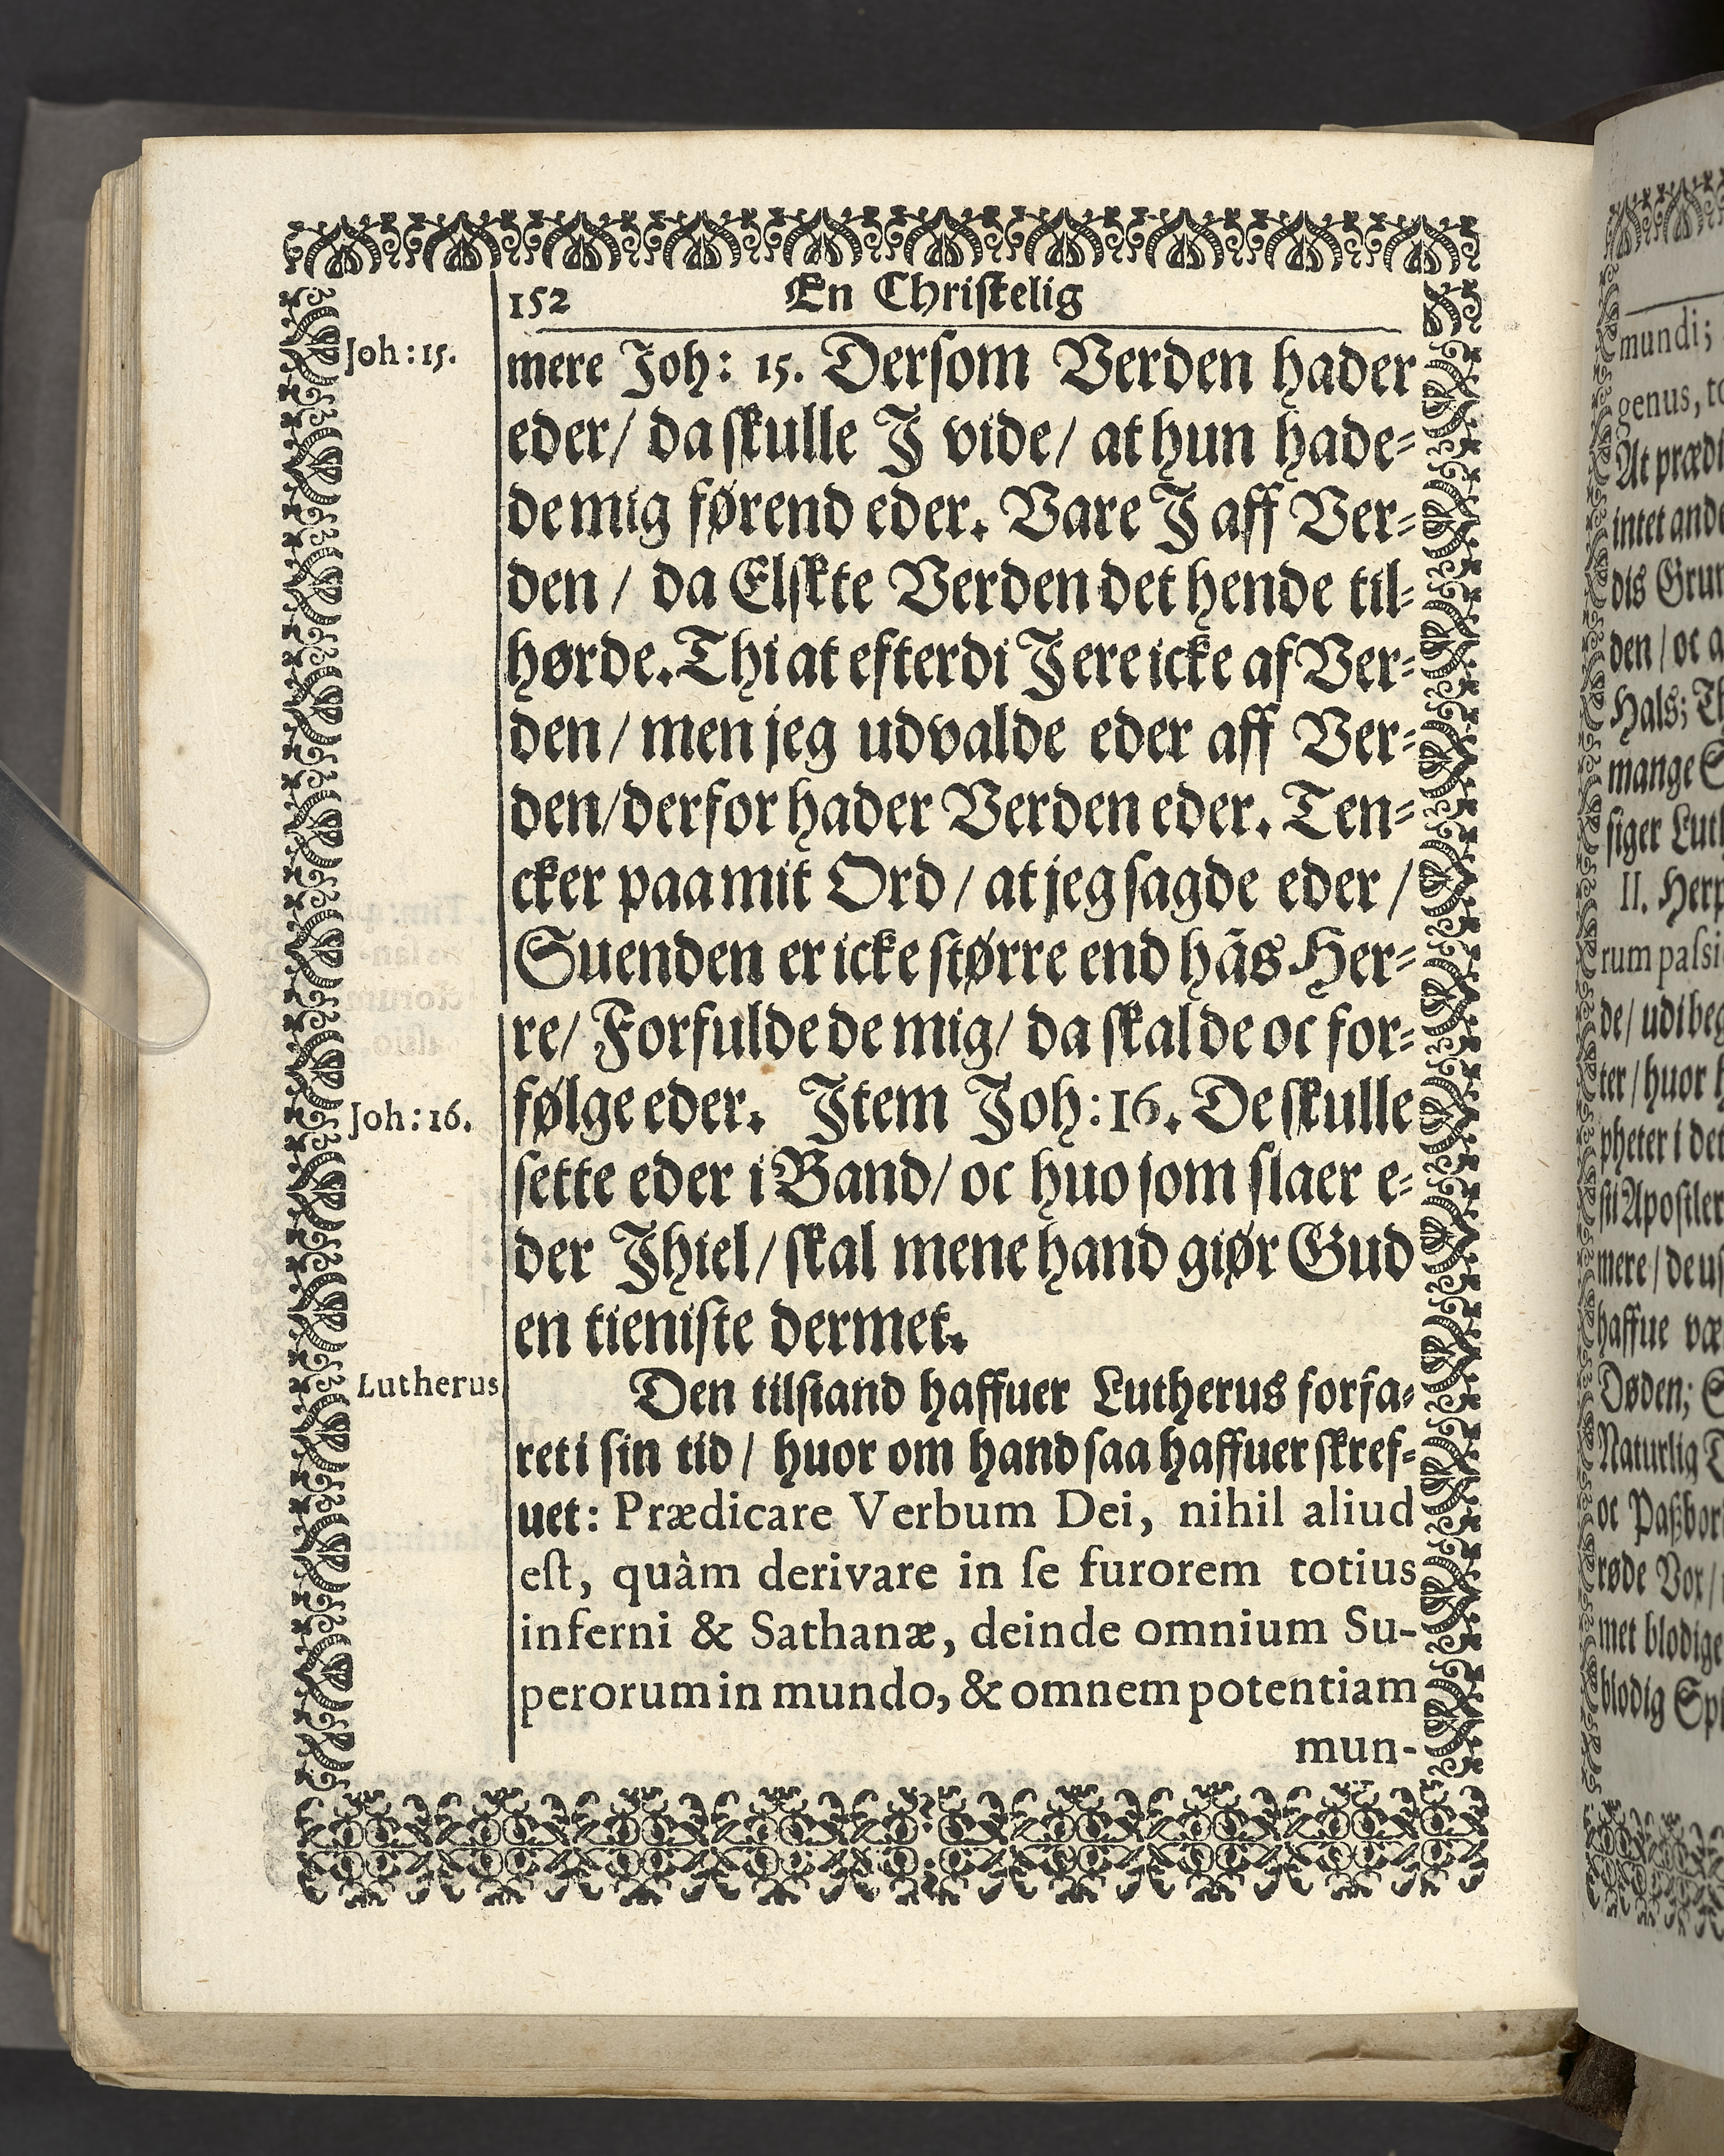 152 En Chriſtelig
Joh: 15.
mere Joh: 15. Derſom Verden hader
eder/ da ſkulle J vide/ at hun hade⸗
de mig førend eder. Vare J aff Ver⸗
den / da Elſkte Verden det hende til⸗
hørde. Thi at efterdi J ere icke af Ver⸗
den / men jeg udvalde eder aff Ver⸗
den/ derfor hader Verden eder. Ten⸗
cker paa mit Ord / at jeg ſagde eder /
Suenden er icke ſtørre end hãs Her⸗
re/ Forfulde de mig/ da ſkal de oc for⸗
Joh: 16.
følge eder. Jtem Joh: 16. De ſkulle
ſette eder i Band/ oc huo ſom ſlaer e⸗
der Jhiel / ſkal mene hand giør Gud
en tieniſte dermet.
Lutherus
Den tilſtand haffuer Lutherus forfa⸗
ret i ſin tid / huor om hand ſaa haffuer ſkref⸗
uet: Prædicare Verbum Dei, nihil aliud
eſt, quàm derivare in ſe furorem totius
inferni & Sathanæ, deinde omnium Su-
perorum in mundo, & omnem potentiam
mun-
mundi;
genus,
At
intet
dis
den / oc
Hals;
mange
ſiger
II.
rum
de/
ter / huor
pheter i
ſti Apoſtler
mere / de
haffue
Døden;
Naturlig
oc
røde Vor /
met blodige
blodig